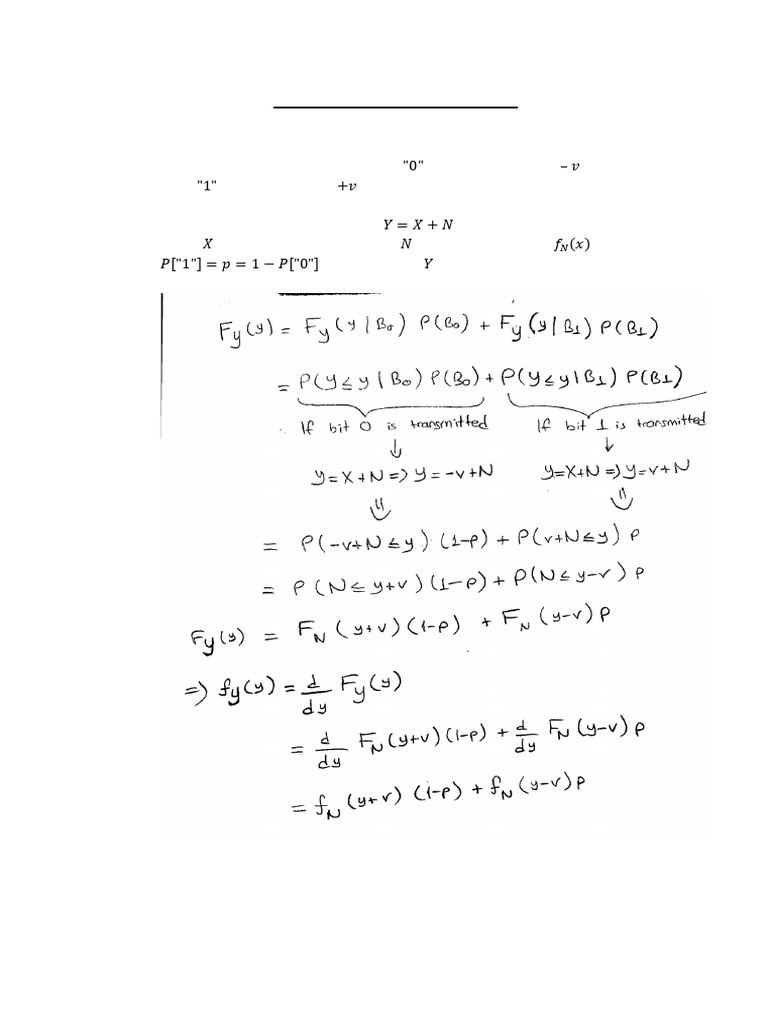 "0" – v
"1" +v
Y = X + N
X N f_N(x)
P["1"] = p = 1 − P["0"] Y
F_Y(y) = F_Y(y|B₀) P(B₀) + F_Y(y|B₁) P(B₁)
= P(Y ≤ y|B₀) P(B₀) + P(Y ≤ y|B₁) P(B₁)
If bit 0 is transmitted If bit 1 is transmitted
↓ ↓
Y = X + N => Y = -v + N Y = X + N => Y = v + N
⇓ ⇓
= P(-v+N ≤ y) (1-p) + P(v+N ≤ y) p
= P(N ≤ y+v)(1-p) + P(N ≤ y-v) p
F_Y(y) = F_N(y+v)(1-p) + F_N(y-v)p
=> f_Y(y) = d/dy F_Y(y)
= d/dy F_N(y+v)(1-p) + d/dy F_N(y-v) p
= f_N(y+v) (1-p) + f_N(y-v)p